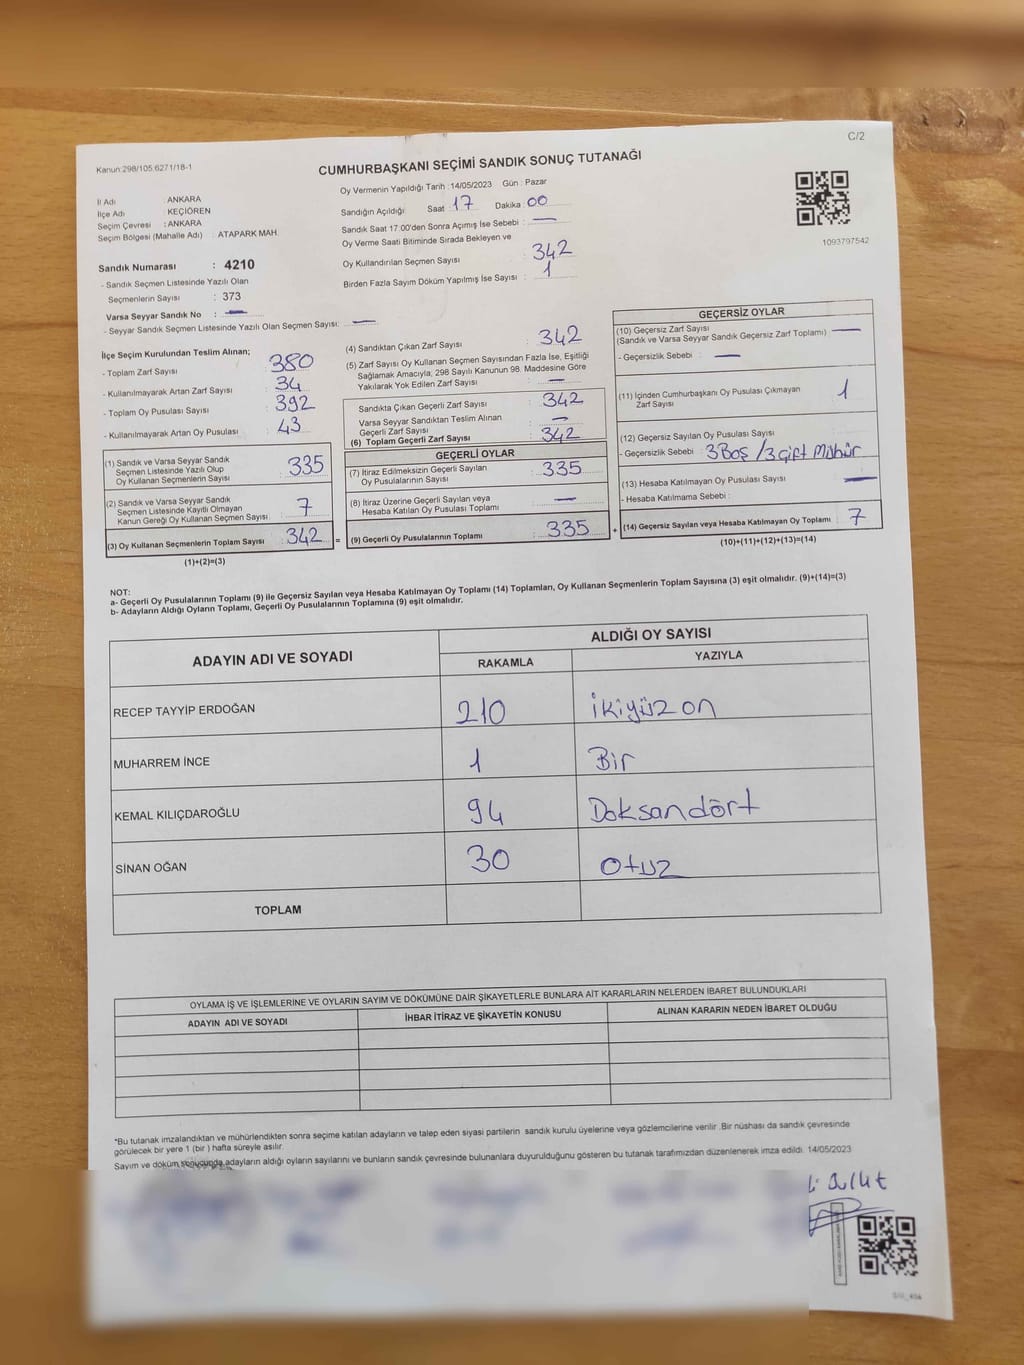 C/2
Kanun:298/105,6271/18-1
CUMHURBAŞKANI SEÇİMİ SANDIK SONUÇ TUTANAĞI
İl Adı : ANKARA
İlçe Adı : KEÇİÖREN
Seçim Çevresi : ANKARA
Seçim Bölgesi (Mahalle Adı) : ATAPARK MAH.
Oy Vermenin Yapıldığı Tarih :14/05/2023 Gün : Pazar
Sandığın Açıldığı Saat : 17 Dakika : 00
Sandık Saat 17.00'den Sonra Açımış İse Sebebi : —
Oy Verme Saati Bitiminde Sırada Bekleyen ve
Oy Kullandırılan Seçmen Sayısı : 342
Birden Fazla Sayım Döküm Yapılmış İse Sayısı : 1
1093797542
Sandık Numarası : 4210
- Sandık Seçmen Listesinde Yazılı Olan
Seçmenlerin Sayısı : 373
Varsa Seyyar Sandık No : —
- Seyyar Sandık Seçmen Listesinde Yazılı Olan Seçmen Sayısı: —
İlçe Seçim Kurulundan Teslim Alınan;
- Toplam Zarf Sayısı : 380
- Kullanılmayarak Artan Zarf Sayısı : 34
- Toplam Oy Pusulası Sayısı : 392
- Kullanılmayarak Artan Oy Pusulası : 43
(1) Sandık ve Varsa Seyyar Sandık
Seçmen Listesinde Yazılı Olup
Oy Kullanan Seçmenlerin Sayısı : 335
(2) Sandık ve Varsa Seyyar Sandık
Seçmen Listesinde Kayıtlı Olmayan
Kanun Gereği Oy Kullanan Seçmen Sayısı : 7
(3) Oy Kullanan Seçmenlerin Toplam Sayısı : 342 =
(1)+(2)=(3)
(4) Sandıktan Çıkan Zarf Sayısı : 342
(5) Zarf Sayısı Oy Kullanan Seçmen Sayısından Fazla İse, Eşitliği
Sağlamak Amacıyla; 298 Sayılı Kanunun 98. Maddesine Göre
Yakılarak Yok Edilen Zarf Sayısı : —
Sandıkta Çıkan Geçerli Zarf Sayısı : 342
Varsa Seyyar Sandıktan Teslim Alınan
Geçerli Zarf Sayısı : —
(6) Toplam Geçerli Zarf Sayısı : 342
GEÇERLİ OYLAR
(7) İtiraz Edilmeksizin Geçerli Sayılan
Oy Pusulalarının Sayısı : 335
(8) İtiraz Üzerine Geçerli Sayılan veya
Hesaba Katılan Oy Pusulası Toplamı : —
(9) Geçerli Oy Pusulalarının Toplamı : 335 +
GEÇERSİZ OYLAR
(10) Geçersiz Zarf Sayısı
(Sandık ve Varsa Seyyar Sandık Geçersiz Zarf Toplamı) —
- Geçersizlik Sebebi : —
(11) İçinden Cumhurbaşkanı Oy Pusulası Çıkmayan
Zarf Sayısı 1
(12) Geçersiz Sayılan Oy Pusulası Sayısı
- Geçersizlik Sebebi : 3 Boş / 3 Çift Mühür
(13) Hesaba Katılmayan Oy Pusulası Sayısı —
- Hesaba Katılmama Sebebi :
(14) Geçersiz Sayılan veya Hesaba Katılmayan Oy Toplamı : 7
(10)+(11)+(12)+(13)=(14)
NOT:
a- Geçerli Oy Pusulalarının Toplamı (9) ile Geçersiz Sayılan veya Hesaba Katılmayan Oy Toplamı (14) Toplamları, Oy Kullanan Seçmenlerin Toplam Sayısına (3) eşit olmalıdır. (9)+(14)=(3)
b- Adayların Aldığı Oyların Toplamı, Geçerli Oy Pusulalarının Toplamına (9) eşit olmalıdır.
ADAYIN ADI VE SOYADI ALDIĞI OY SAYISI
RAKAMLA YAZIYLA
RECEP TAYYİP ERDOĞAN 210 İkiyüz on
MUHARREM İNCE 1 Bir
KEMAL KILIÇDAROĞLU 94 Doksandört
SİNAN OĞAN 30 Otuz
TOPLAM
OYLAMA İŞ VE İŞLEMLERİNE VE OYLARIN SAYIM VE DÖKÜMÜNE DAİR ŞİKAYETLERLE BUNLARA AİT KARARLARIN NELERDEN İBARET BULUNDUKLARI
ADAYIN ADI VE SOYADI İHBAR İTİRAZ VE ŞİKAYETİN KONUSU ALINAN KARARIN NEDEN İBARET OLDUĞU
*Bu tutanak imzalandıktan ve mühürlendikten sonra seçime katılan adayların ve talep eden siyasi partilerin sandık kurulu üyelerine veya gözlemcilerine verilir .Bir nüshası da sandık çevresinde
görülecek bir yere 1 (bir ) hafta süreyle asılır.
Sayım ve döküm sonucunda adayların aldığı oyların sayılarını ve bunların sandık çevresinde bulunanlara duyurulduğunu gösteren bu tutanak tarafımızdan düzenlenerek imza edildi. 14/05/2023